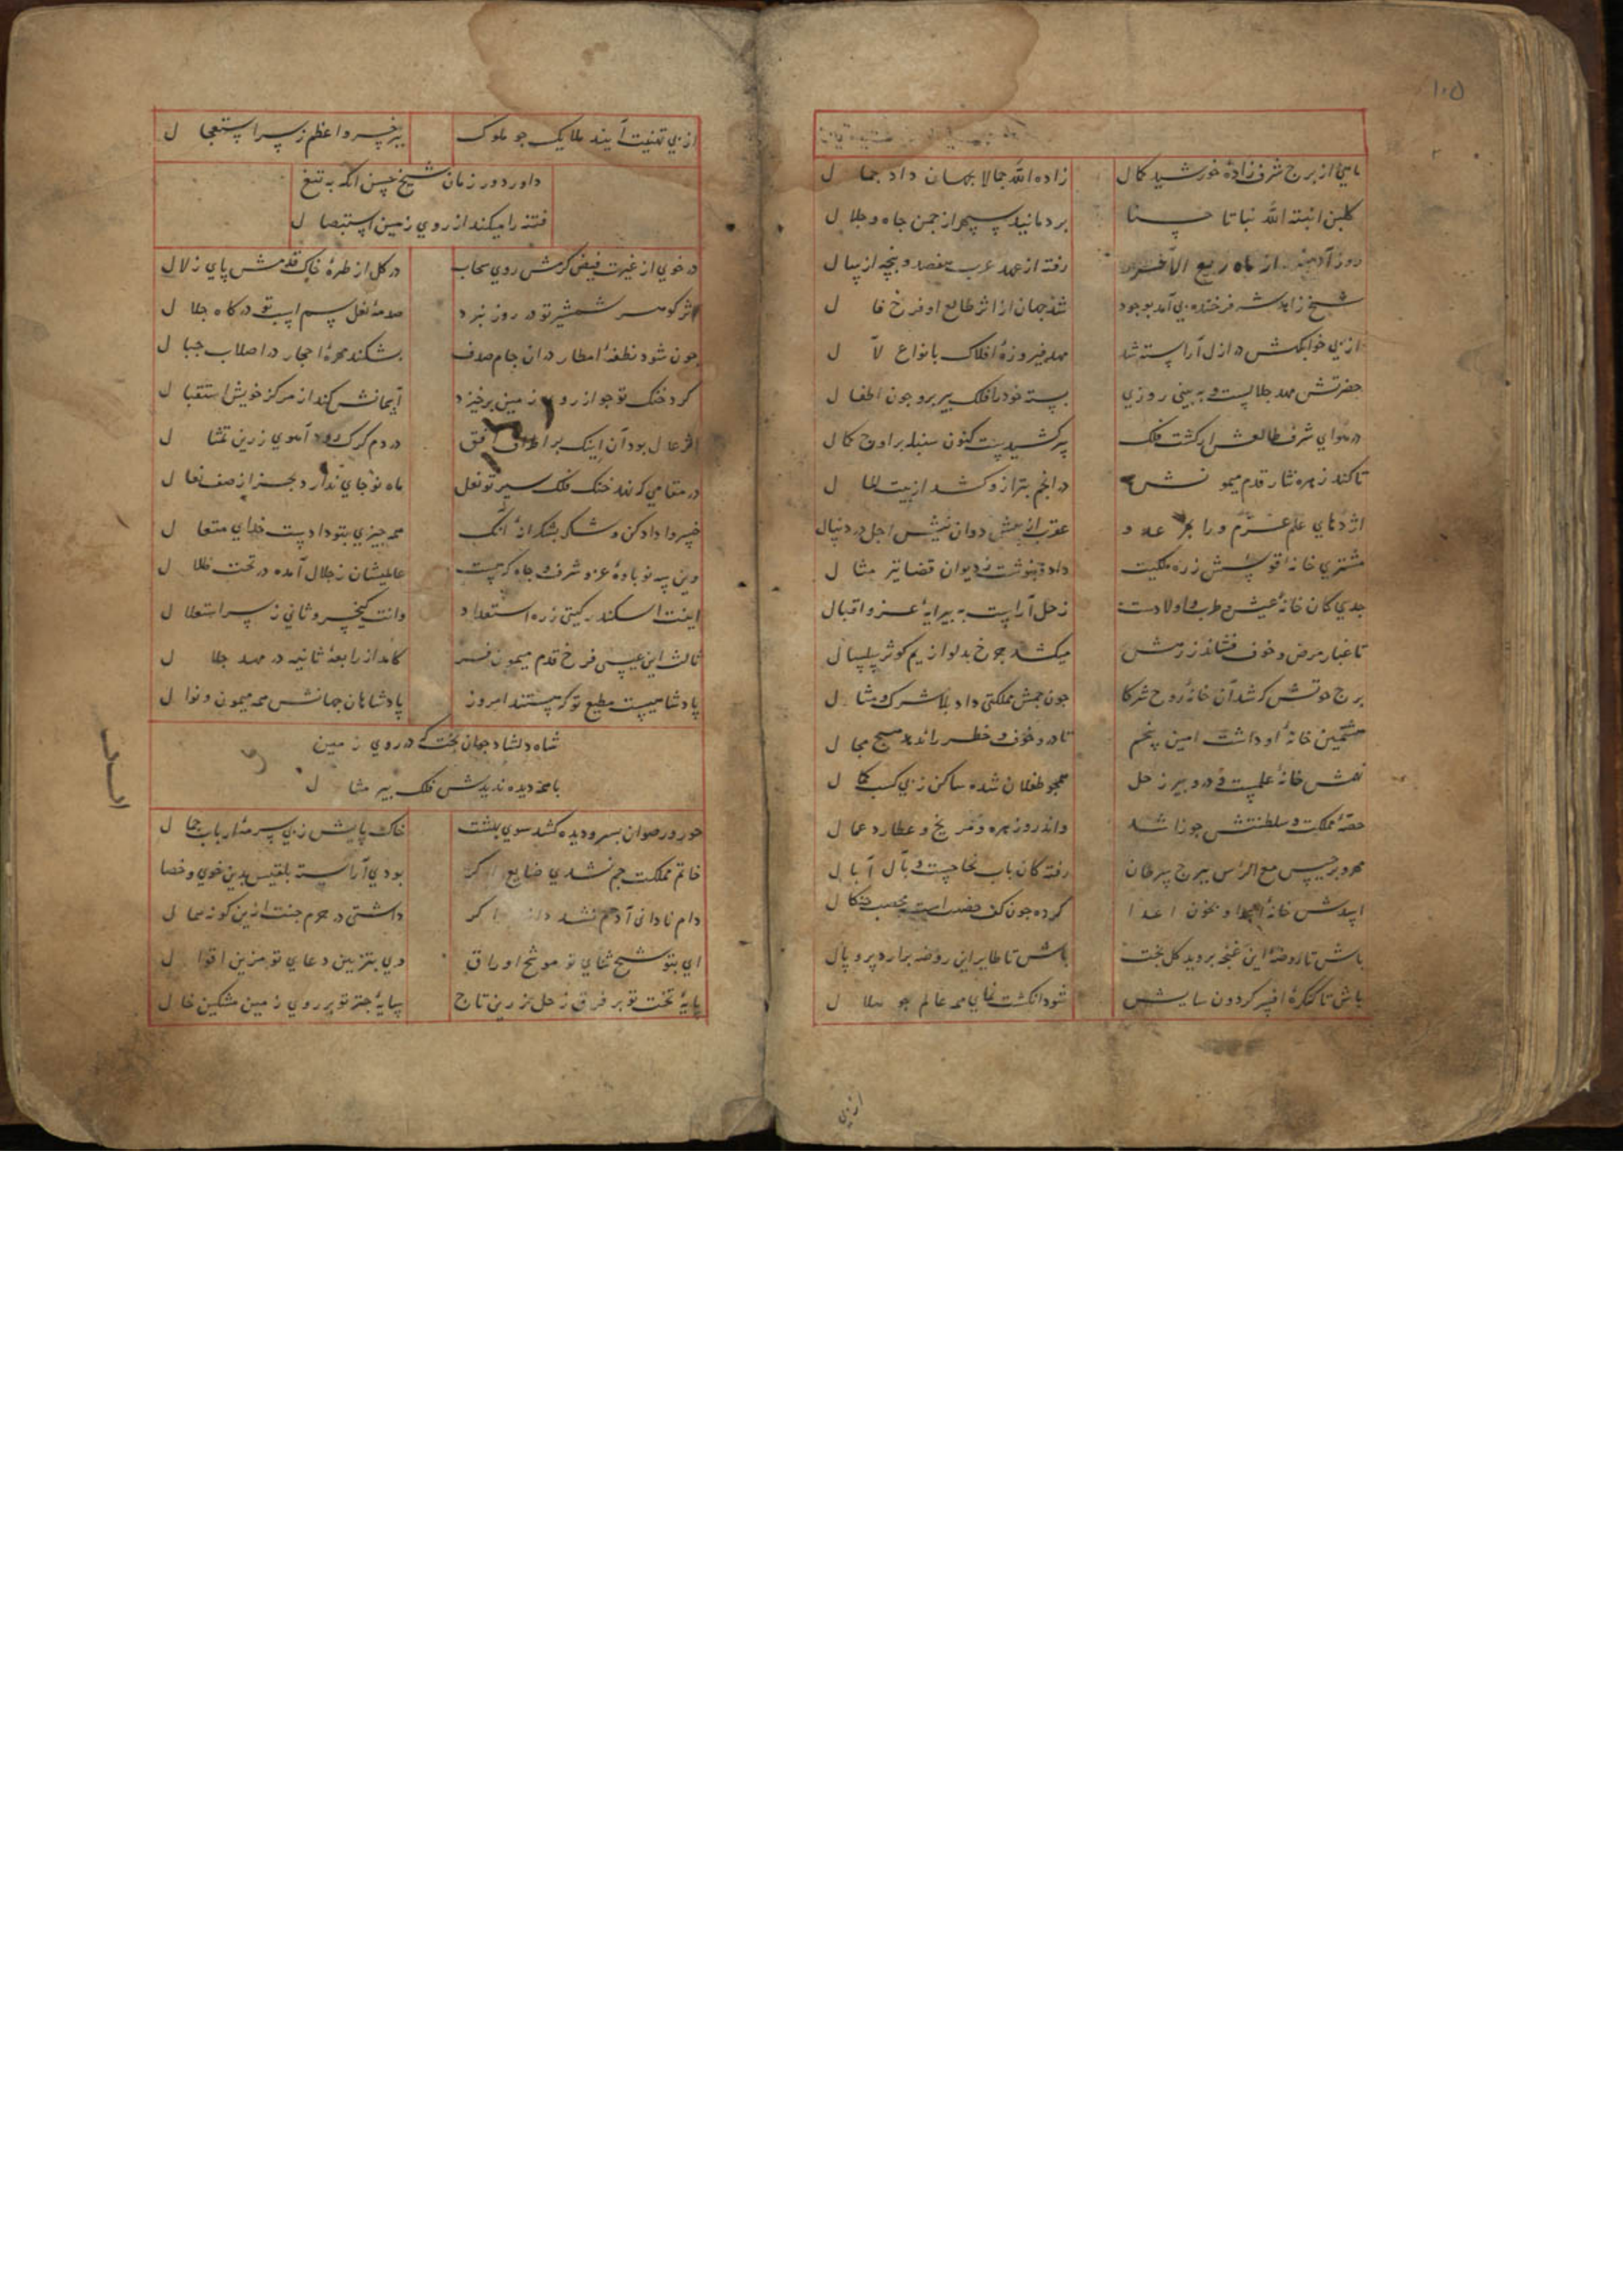 ۱۰۵
ماهی از برج شرف زاده خورشید کمال
زاده الله جمالا بجهان داد جمال
کلبن انبته الله نباتا حسنا
بردمانید سپهر از چمن جاه و جلال
روز آدینه از ماه ربیع الآخر
رفته از عهد عرب هفصد و پنجه از سال
شیخ زاهد شه فرخنده پی آمد بوجود
شد جهان از اثر طالع او فرخ فال
از پی خوابکهش در ازل آراسته شد
مهد فیروزهٔ افلاک بانواع لآل
حضرتش مهد جلالست و به بینی روزی
بسته خود را فلک پیر برو چون اطفال
در هوای شرف طالعش ار کشت فلک
برکشیدست کنون سنبله بر اوج کمال
تا کند زهره نثار قدم میمونش
در انجم بترازو کشد از بیت المال
اژدهای علم عزم ورا بهر عدو
عقرب اینک دوان نیش اجل در دنبال
مشتری خانه اقوسش ز ره ملکیت
داد و بنوشت ز دیوان قضا تیر مثال
جدی کان خانهٔ عیش و طرب و اولادست
زحل آراست به پیرایهٔ عز و اقبال
تا غبار مرض و خوف فشاند ز رهش
میکشد چرخ بدلو از یم کوثر سلسال
برج حوتش که شد آن خانهٔ زوج شرکا
چون جمش مملکتی داد بلا شرک و مثال
هشتمین خانهٔ او داشت امین پنجم
تا درو خوف و خطر را ندهد هیچ مجال
نهمش خانهٔ علمست و درو پیر زحل
همچو طفلان شده ساکن ز پی کسب کمال
حصهٔ مملکت و سلطنتش جوزا شد
واندرو زهره و مریخ و عطارد عمال
مه و برجیس مع الراس ببرج سرطان
رفته کان باب نجاحست و مآل آمال
اسدش خانهٔ اعدا و بخون اعدا
کرده چون کف خضیب است چنکال
باش تا روضهٔ این غنچه بروید کل بخت
باش تا طایر این روضه برآرد پر و بال
باش تا کنکرهٔ افسر کردون سایش
شود انکشت نمای همه عالم چو هلال
از پی
از پی تهنیت آیند ملایک چو ملوک
بر خسرو اعظم ز سر استعجال
داور دور زمان شیخ حسن آنکه به تیغ
فتنه را میکند از روی زمین استیصال
در خوی از غیرت فیض کرمش روی سحاب
در کل از طرهٔ خاک قدمش پای زلال
اثر کوهر شمشیر تو در روز نبرد
صدمهٔ نعل سم اسب تو در کاه جلال
خون شود نطفهٔ امطار در ان جام صدف
بشکند مهرهٔ احجار در اصلاب جبال
کرد خنک تو چو از روی زمین برخیزد
آسمانش کند از مرکز خویش استقبال
اثر عدل بود آن اینک بر اطراف افق
در دم کرک رود آهوی زرین تمثال
در مقامی که نهد خنک فلک سیر تو نعل
ماه نو جای ندارد بجز از صف نعال
خسروا داد کن و شکر بشکرانهٔ آنک
همه چیزی بتو دادست خدای متعال
وین سه نوباوهٔ عز و شرف و جاه که هست
عالیشان ز جلال آمده در تحت ظلال
اینت اسکندر کیتی ز ره استعداد
وانت کیخسرو ثانی ز سر استعلال
ثالث این عیسی فرخ قدم میمون فر
کامد از رابعهٔ ثانیه در مهد جلال
پادشاهیست مطیع تو که هستند امروز
پادشاهان جهانش همه میمون و نوال
شاه دلشاد جهان بخت که در روی زمین
با همه دیده ندیدش فلک پیر مثال
حور و رضوان بسر و دیده کشد سوی بهشت
خاک پایش ز پی سرمهٔ ارباب جمال
خاتم مملکت جم نشدی ضایع اکر
بودی آراسته بلقیس بدین خوی و خصال
دام نادانی آدم نشدی دانه اکر
داشتی در حرم جنت ازین کونه عیال
ای بتوشیح ثنای تو موشح اوراق
وی بتزیین دعای تو مزین اقوال
پایهٔ تخت تو بر فرق زحل زرین تاج
سایهٔ چتر تو بر روی زمین مشکین خال